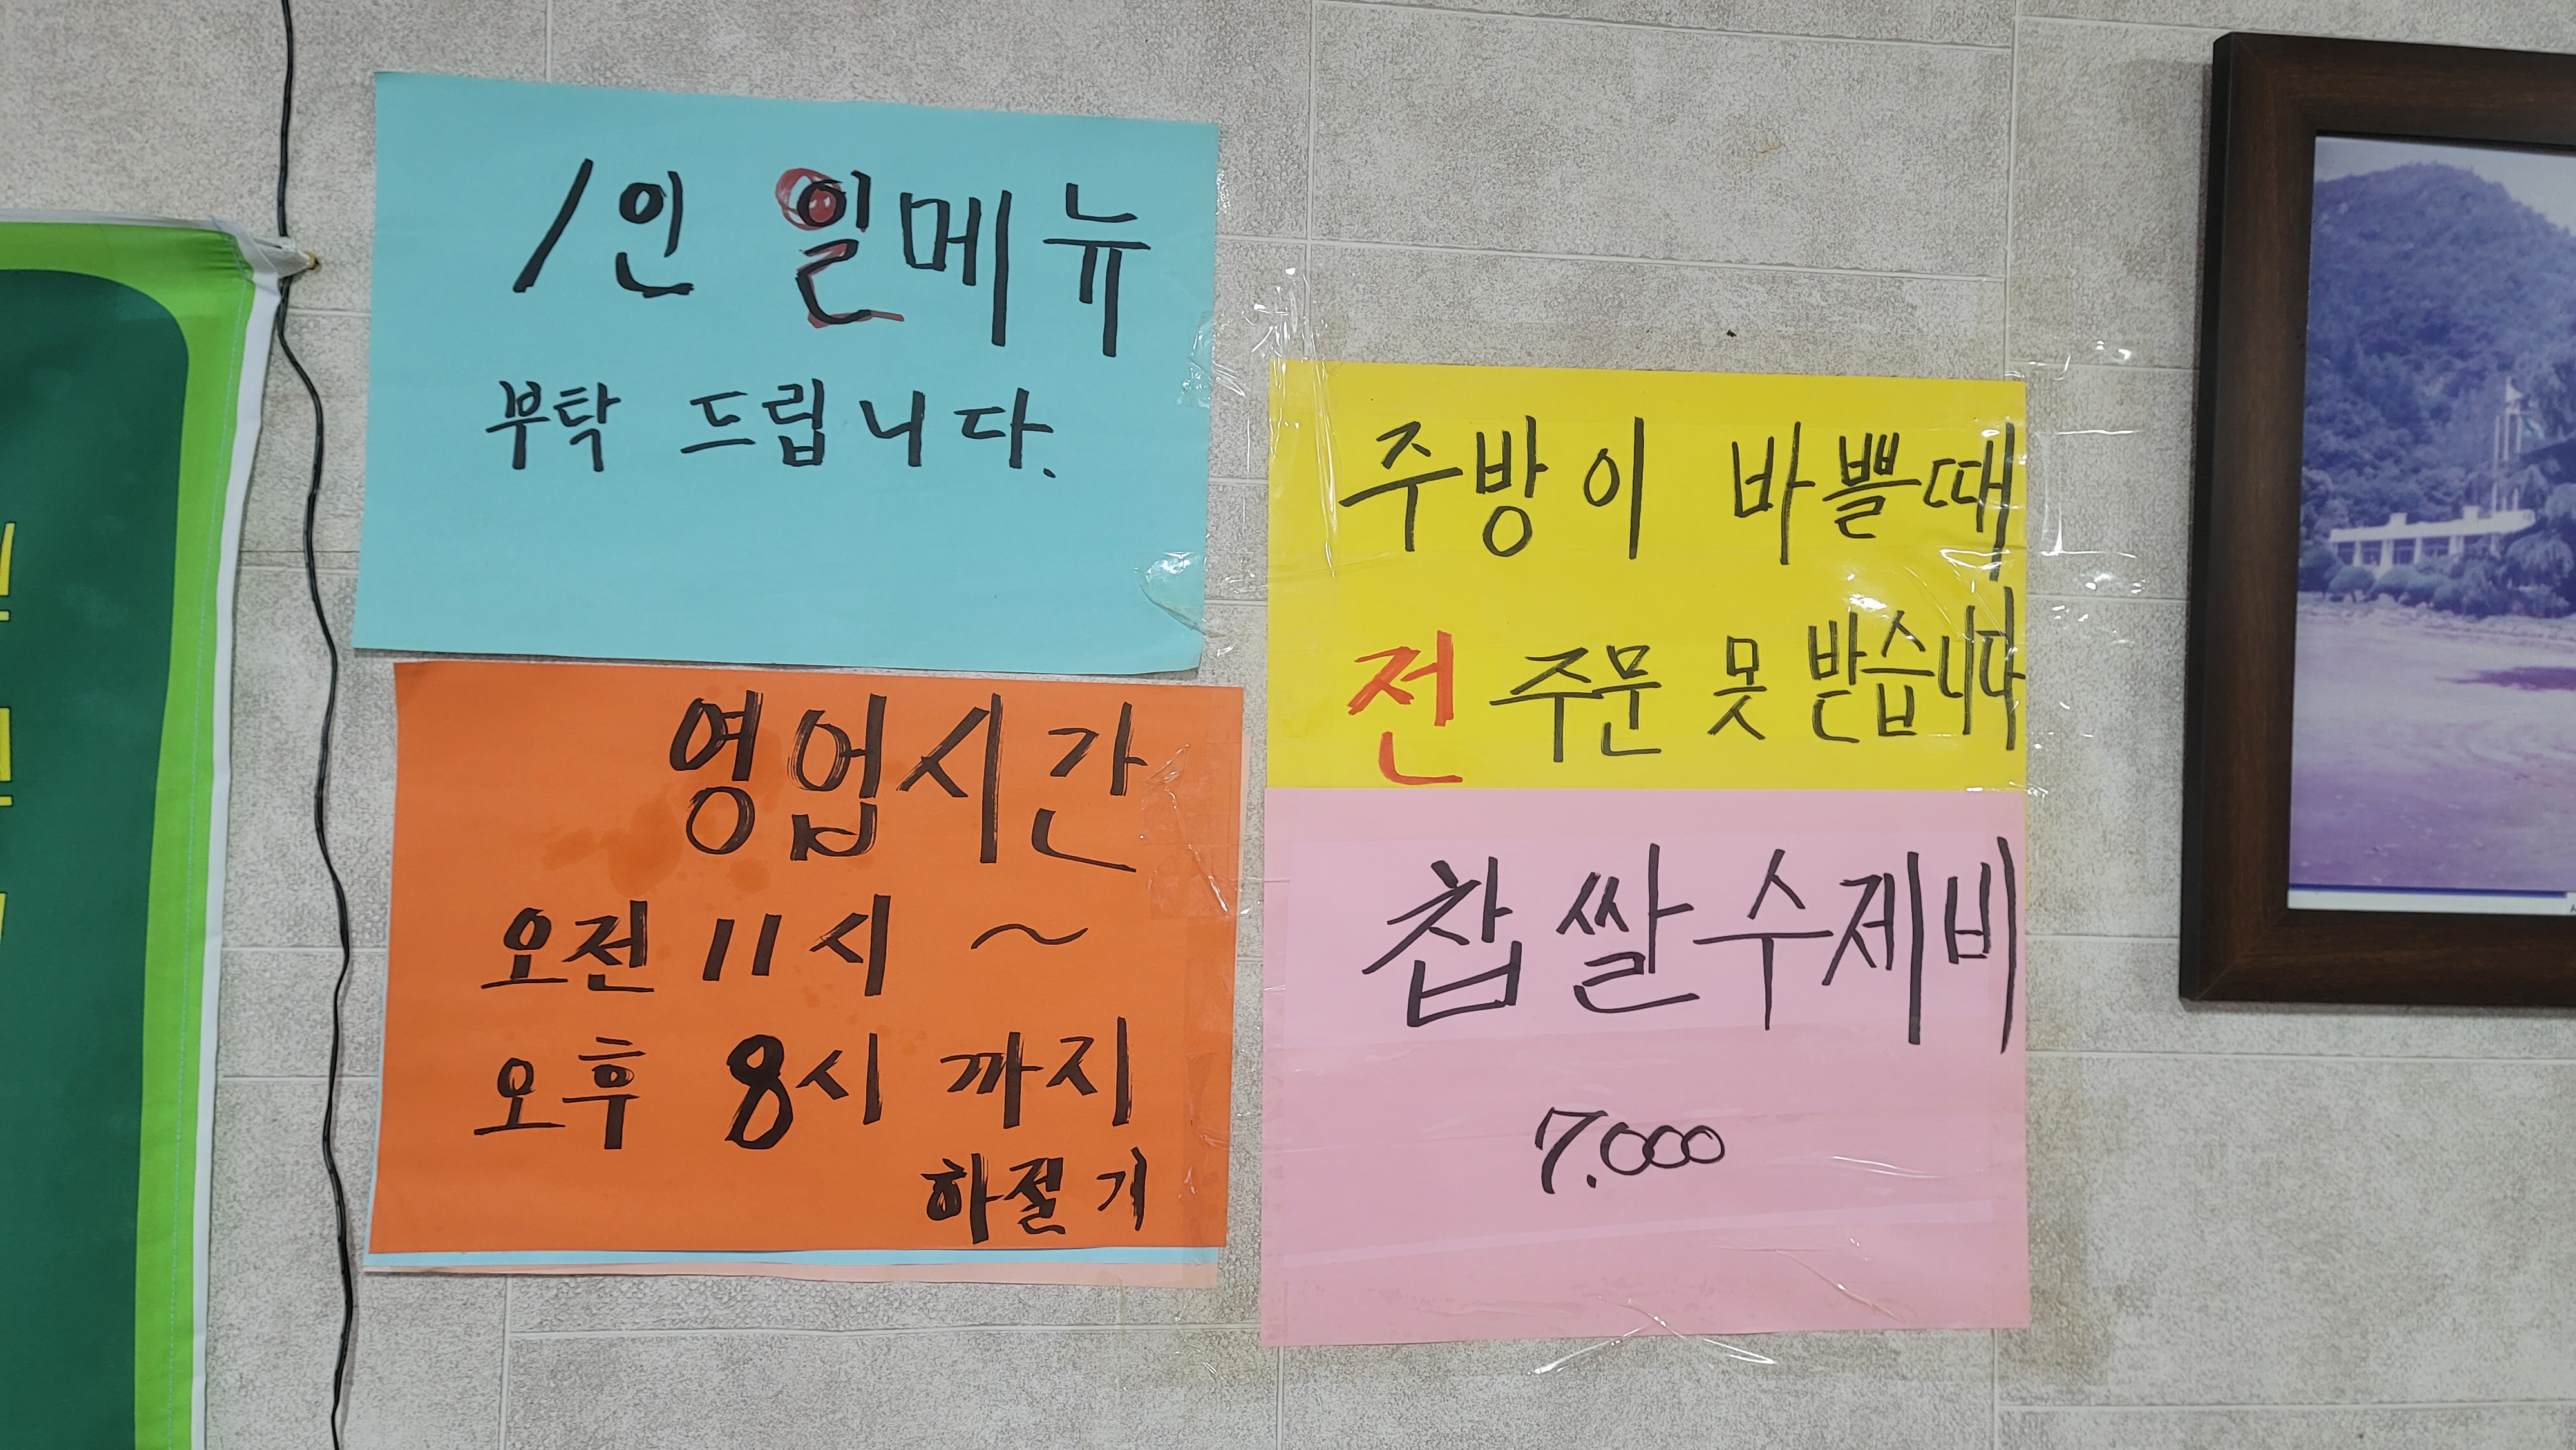 1인 일메뉴
부탁 드립니다.
영업시간
오전 11시 ~
오후 8시 까지
하절기
주방이 바쁠때
전 주문 못 받습니다
찹쌀수제비
7.000